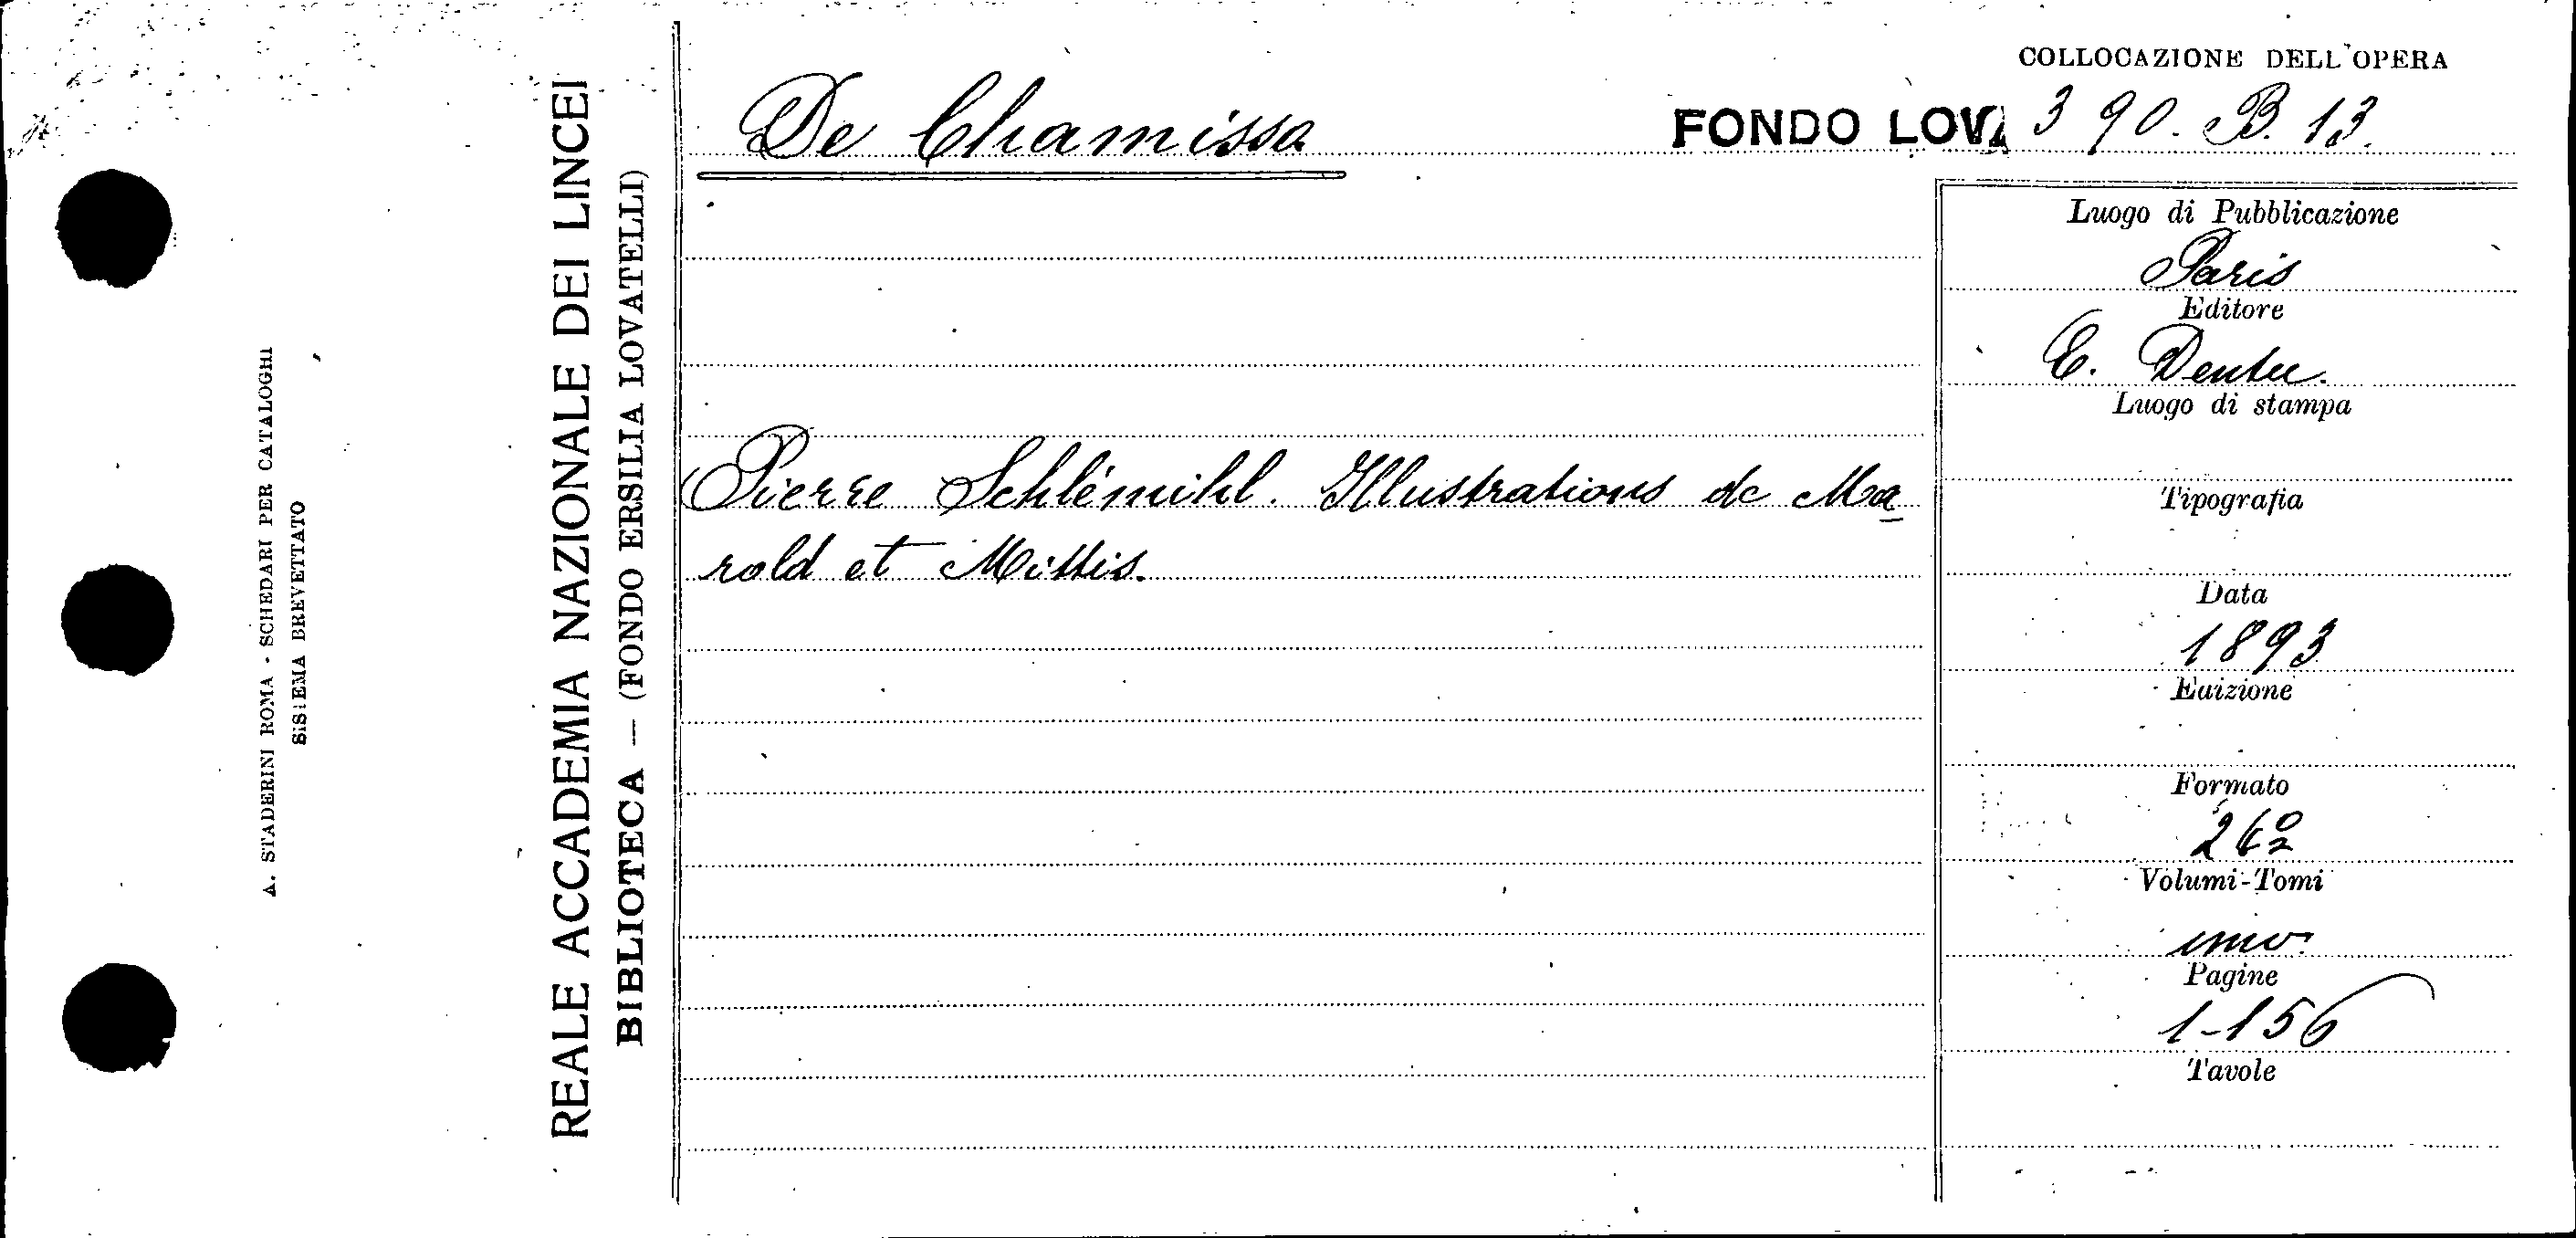 COLLOCAZIONE DELL'OPERA
De Chamissa
FONDO LOV. 390. B. 13.
Luogo di Pubblicazione
Paris
Editore
E. Dentu.
Luogo di stampa
Pierre Schlémihl. Illustrations de Ma
rold et Mittis.
Tipografia
Data
1893
Edizione
Formato
Volumi-Tomi
uno
Pagine
1-156
Tavole
REALE ACCADEMIA NAZIONALE DEI LINCEI
BIBLIOTECA — (FONDO ERSILIA LOVATELLI)
A. STADERINI ROMA - SCHEDARI PER CATALOGHI
SISTEMA BREVETTATO